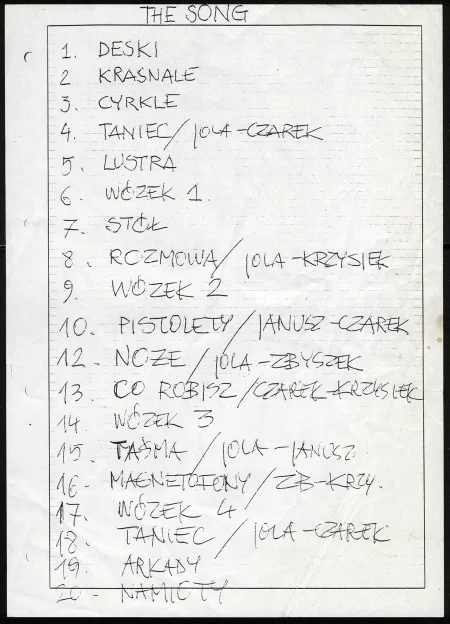 THE SONG
1. DESKI
2 KRASNALE
3. CYRKLE
4. TANIEC/JOLA-CZAREK
5. LUSTRA
6. WÓZEK 1.
7. STÓŁ
8. ROZMOWA/JOLA-KRZYSIEK
9. WÓZEK 2
10. PISTOLETY/JANUSZ-CZAREK
12. NOŻE/JOLA-ZBYSZEK
13. CO ROBISZ/CZAREK-KRZYSIEK
14 WÓZEK 3
15. TAŚMA/JOLA-JANUSZ
16- MAGNETOFONY/ZB-KRZY.
17. WÓZEK 4
18- TANIEC/JOLA-CZAREK
19. ARKADY
20- NAMIOTY